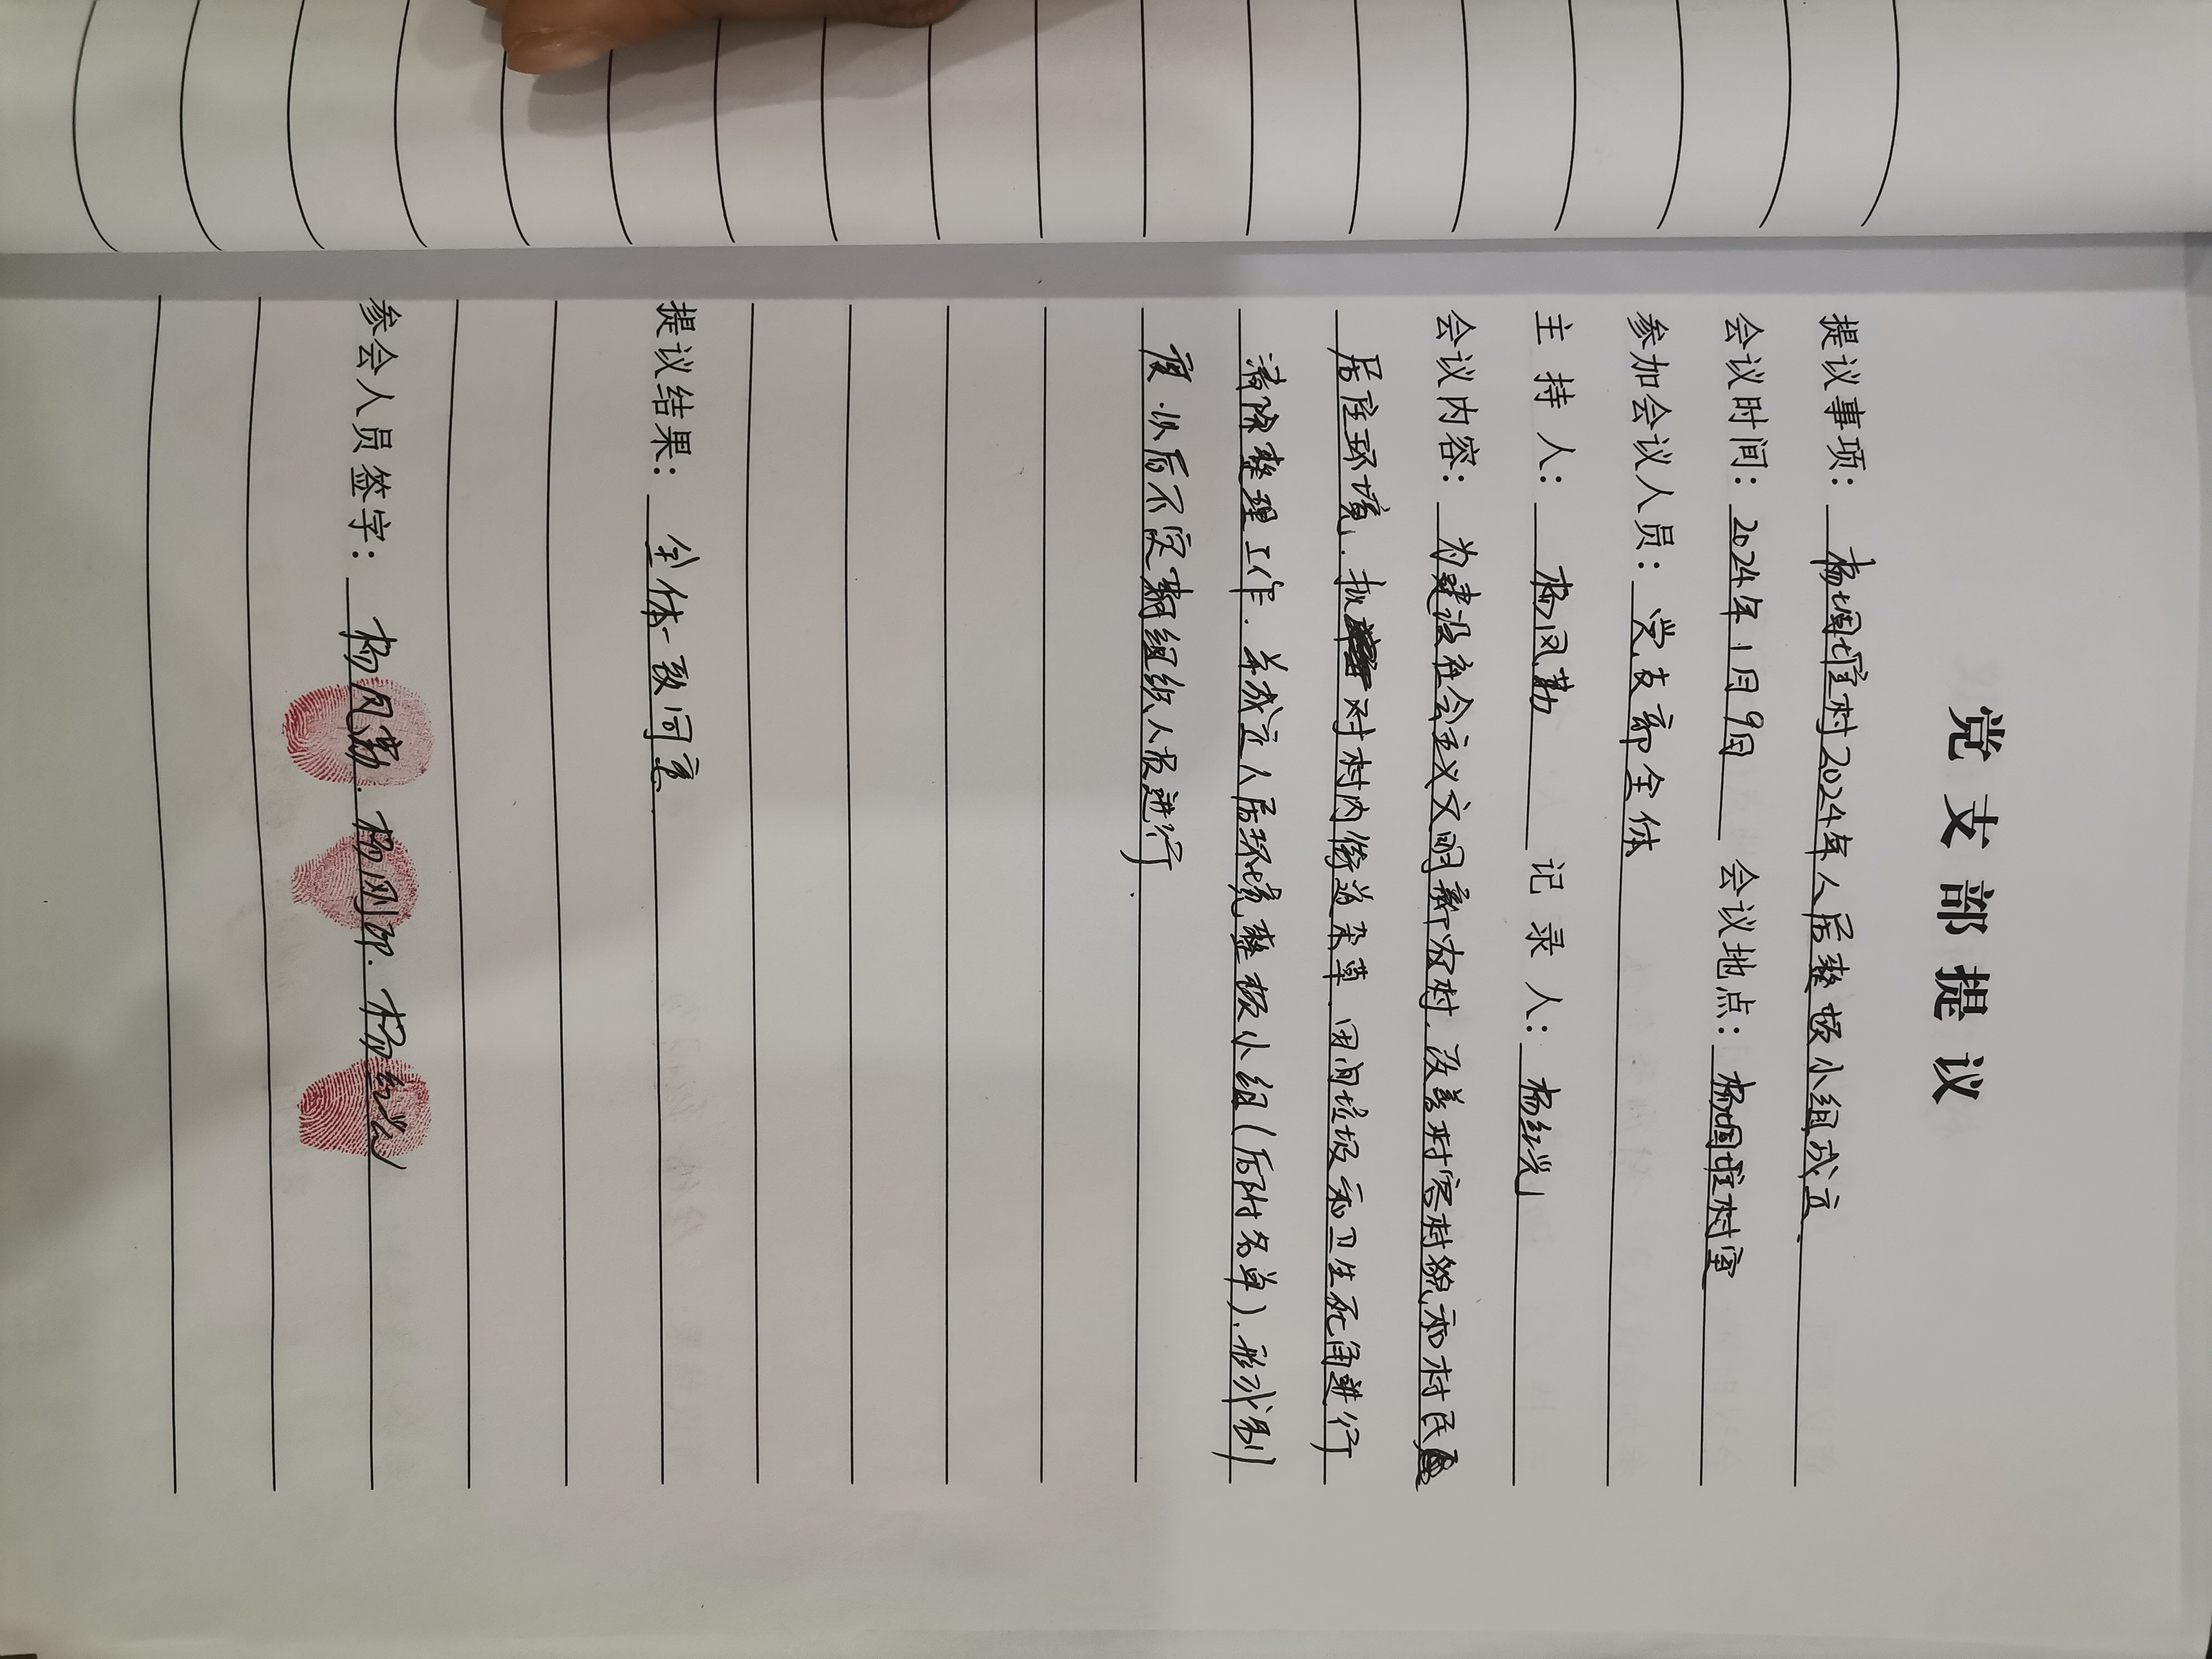 党支部提议
提议事项：杨堌堆村2024年人居整顿小组成立.
会议时间：2024年1月9日 会议地点：杨堌堆村室
参加会议人员：党支部全体
主持人：杨风勤 记录人：杨红兴
会议内容：为建设社会主义文明新农村.改善村容村貌和村民
居住环境.拟对村内街道杂草.田间垃圾和卫生死角进行
清除整理工作.并成立人居环境整顿小组(后附名单).形成制
度.以后不定期组织人员进行.
提议结果：全体一致同意.
参会人员签字：杨风勤.杨刚印.杨红兴